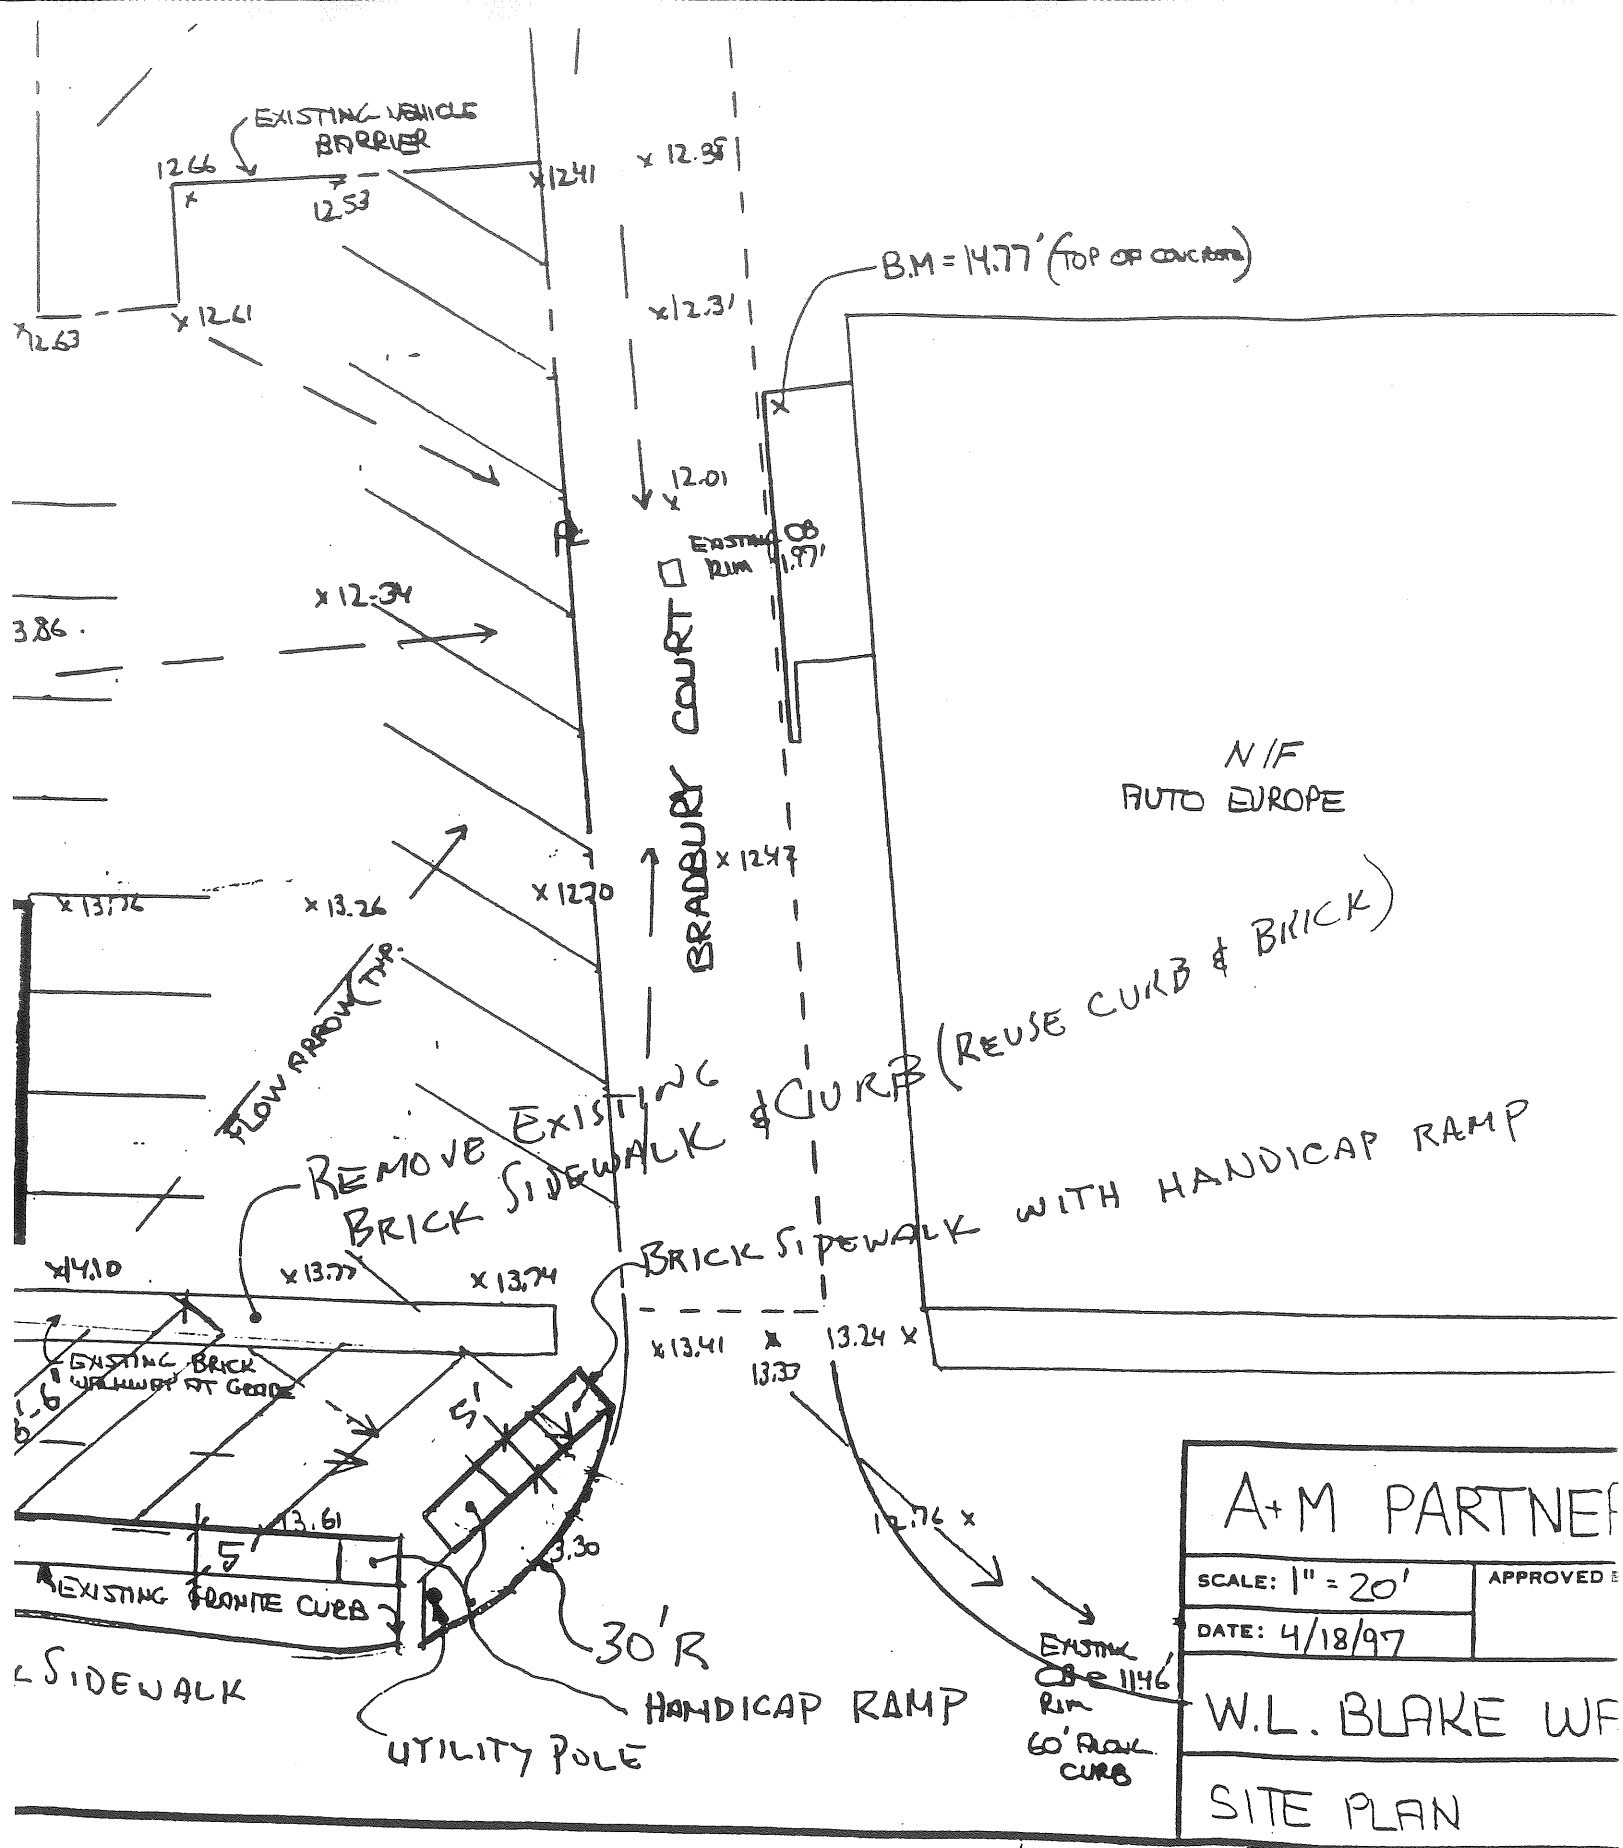 EXISTING VEHICLE
BARRIER
12.66
12.53
x 12.41
x 12.38
B.M = 14.77' (TOP OF CONCRETE)
x 12.31
x 12.61
x 12.63
12.01
x
EXISTING CB
RIM 11.97'
x 12.34
3.86
BRADBURY COURT
N/F
AUTO EUROPE
x 12.47
x 12.70
x 13.76
x 13.26
FLOW ARROW (TYP.
REMOVE EXISTING
BRICK SIDEWALK & CURB (REUSE CURB & BRICK)
BRICK SIDEWALK WITH HANDICAP RAMP
x 14.10
x 13.77
x 13.74
x 13.41
x
13.33
13.24 x
EXISTING BRICK
WALKWAY AT GRADE
5'
13.61
5
3.30
12.76 x
EXISTING GRANITE CURB
30'R
SIDEWALK
HANDICAP RAMP
UTILITY POLE
EXISTING
CB @ 11.46'
RIM
60' ALONG
CURB
A+M PARTNER
SCALE: 1" = 20'
APPROVED
DATE: 4/18/97
W.L. BLAKE
SITE PLAN